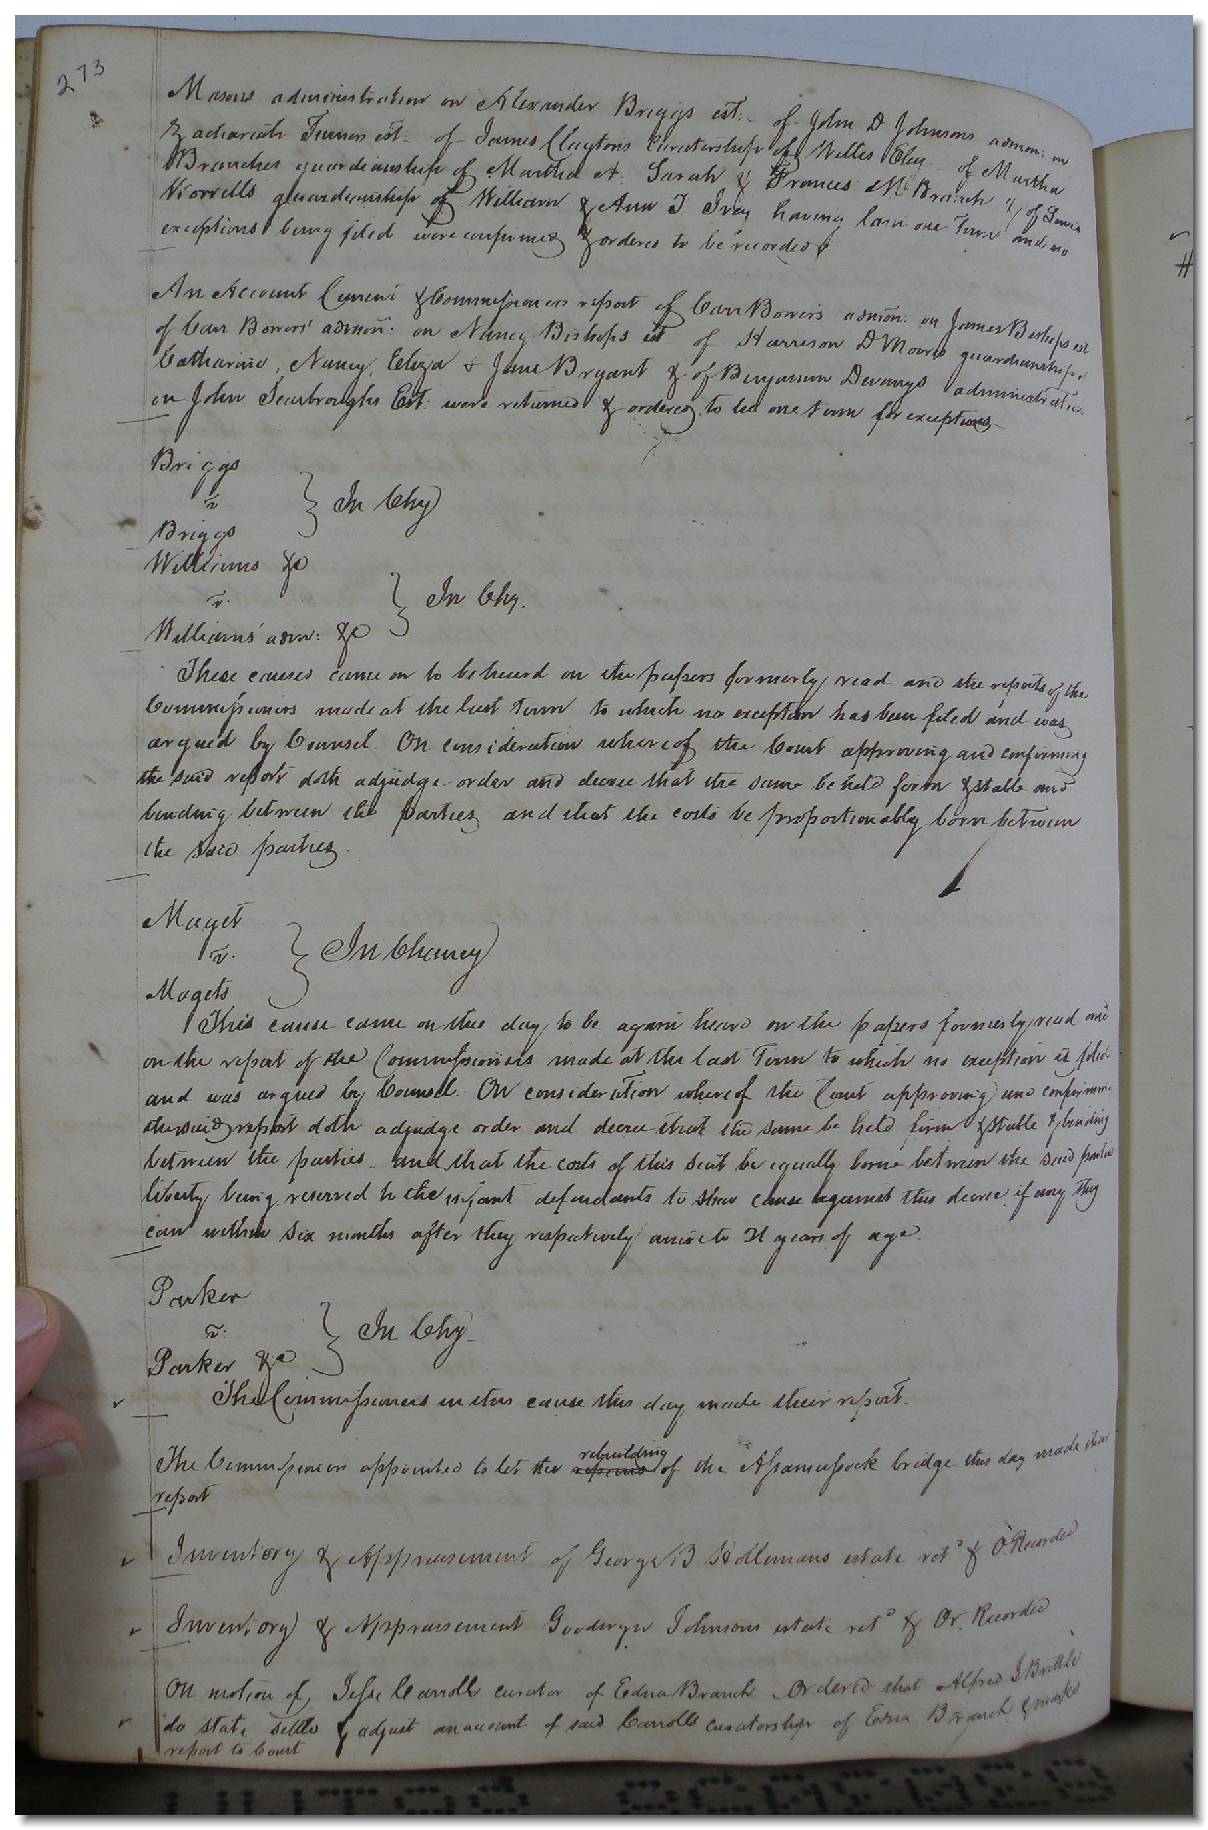 273
Masons administration on Alexander Briggs est: of John D Johnsons admon: on
Zachariah Turners est: of James Claytons Curatorship of Willis Eley of Martha
Branches guardianship of Martha A. Sarah & Frances M Branch & of James
Worrells guardianship of William & Ann T Ivey having lain one Term and no
exceptions being filed were confirmed & ordered to be recorded
An Account Current & Commissioners report of Carr Bowers admon: on James Bishops est
of Carr Bowers' admon: on Nancy Bishops est of Harrison D Moore guardianship
Catharine, Nancy, Eliza & Jane Bryant & of Benjamin Devanys administration
on John Scarbroughs Est: were returned & ordered to lie one term for exceptions
Briggs
v
Briggs
} In Chy
Williams &c
v.
Williams' adm: &c
} In Chy.
These causes came on to be heard on the papers formerly read and the reports of the
Commissioners made at the last Term to which no exception has been filed and was
argued by Counsel. On consideration whereof the Court approving and confirming
the said report doth adjudge order and decree that the same be held form & stable and
binding between the parties and that the costs be proportionably born between
the said parties.
Maget
v.
Magets
} In Chancy
This cause came on this day to be again heard on the papers formerly read and
on the report of the Commissioners made at the last Term to which no exception is filed
and was argued by Counsel. On consideration whereof the Court approving and confirming
the said report doth adjudge order and decree that the same be held firm & stable & binding
between the parties and that the costs of this suit be equally borne between the said parties
liberty being reserved to the infant defendants to shew cause against this decree if any they
can within six months after they respectively arrive to 21 years of age.
Parker
v.
Parker &c
} In Chy
The Commissioners in this cause this day made their report.
The Commissioners appointed to let the repairs rebuilding of the Assamussock bridge this day made their
report
Inventory & Appraisement of George B Hollemans estate retd & O. Recorded
Inventory & Appraisement Goodwyn Johnsons estate retd & Or. Recorded
On motion of Jesse Carroll curator of Edna Branch Ordered that Alfred J Brittle
do state settle & adjust an account of said Carrolls curatorship of Edna Branch & make
report to Court